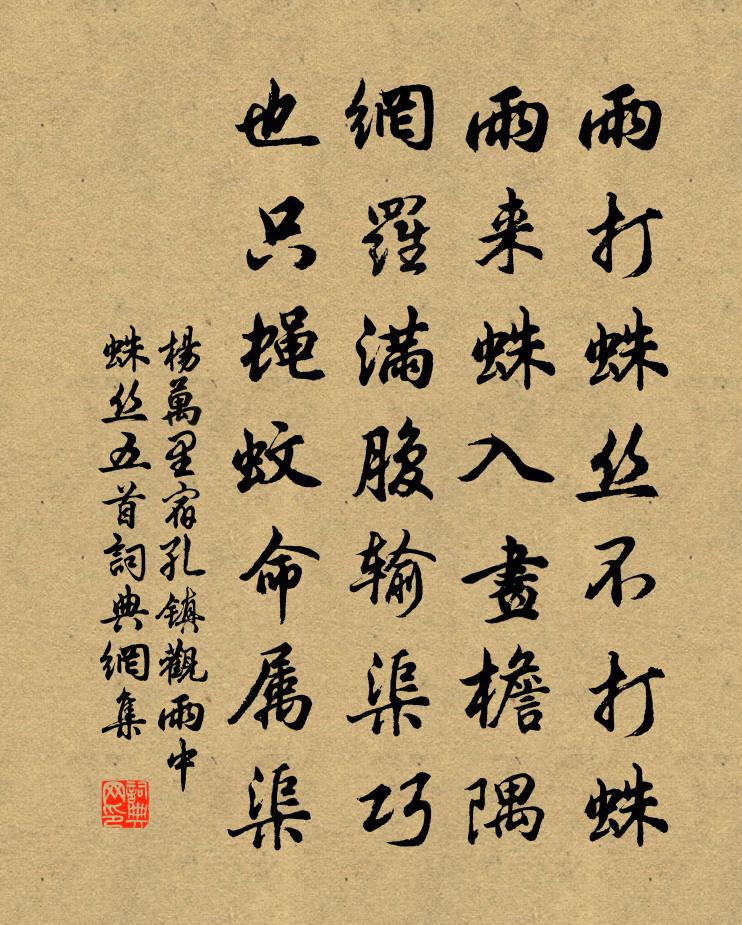 雨打蛛丝不打蛛
雨来蛛入畫檐隅
網羅满腹输渠巧
也只蝇蚊命属渠
楊萬里宿孔镇觀雨中
蛛丝五首詞典網集
詞典网印